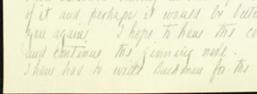 if it and perhaps it would be better
you again. I hope to have the co
and continue the ginning next
I have had to write Buchman for the